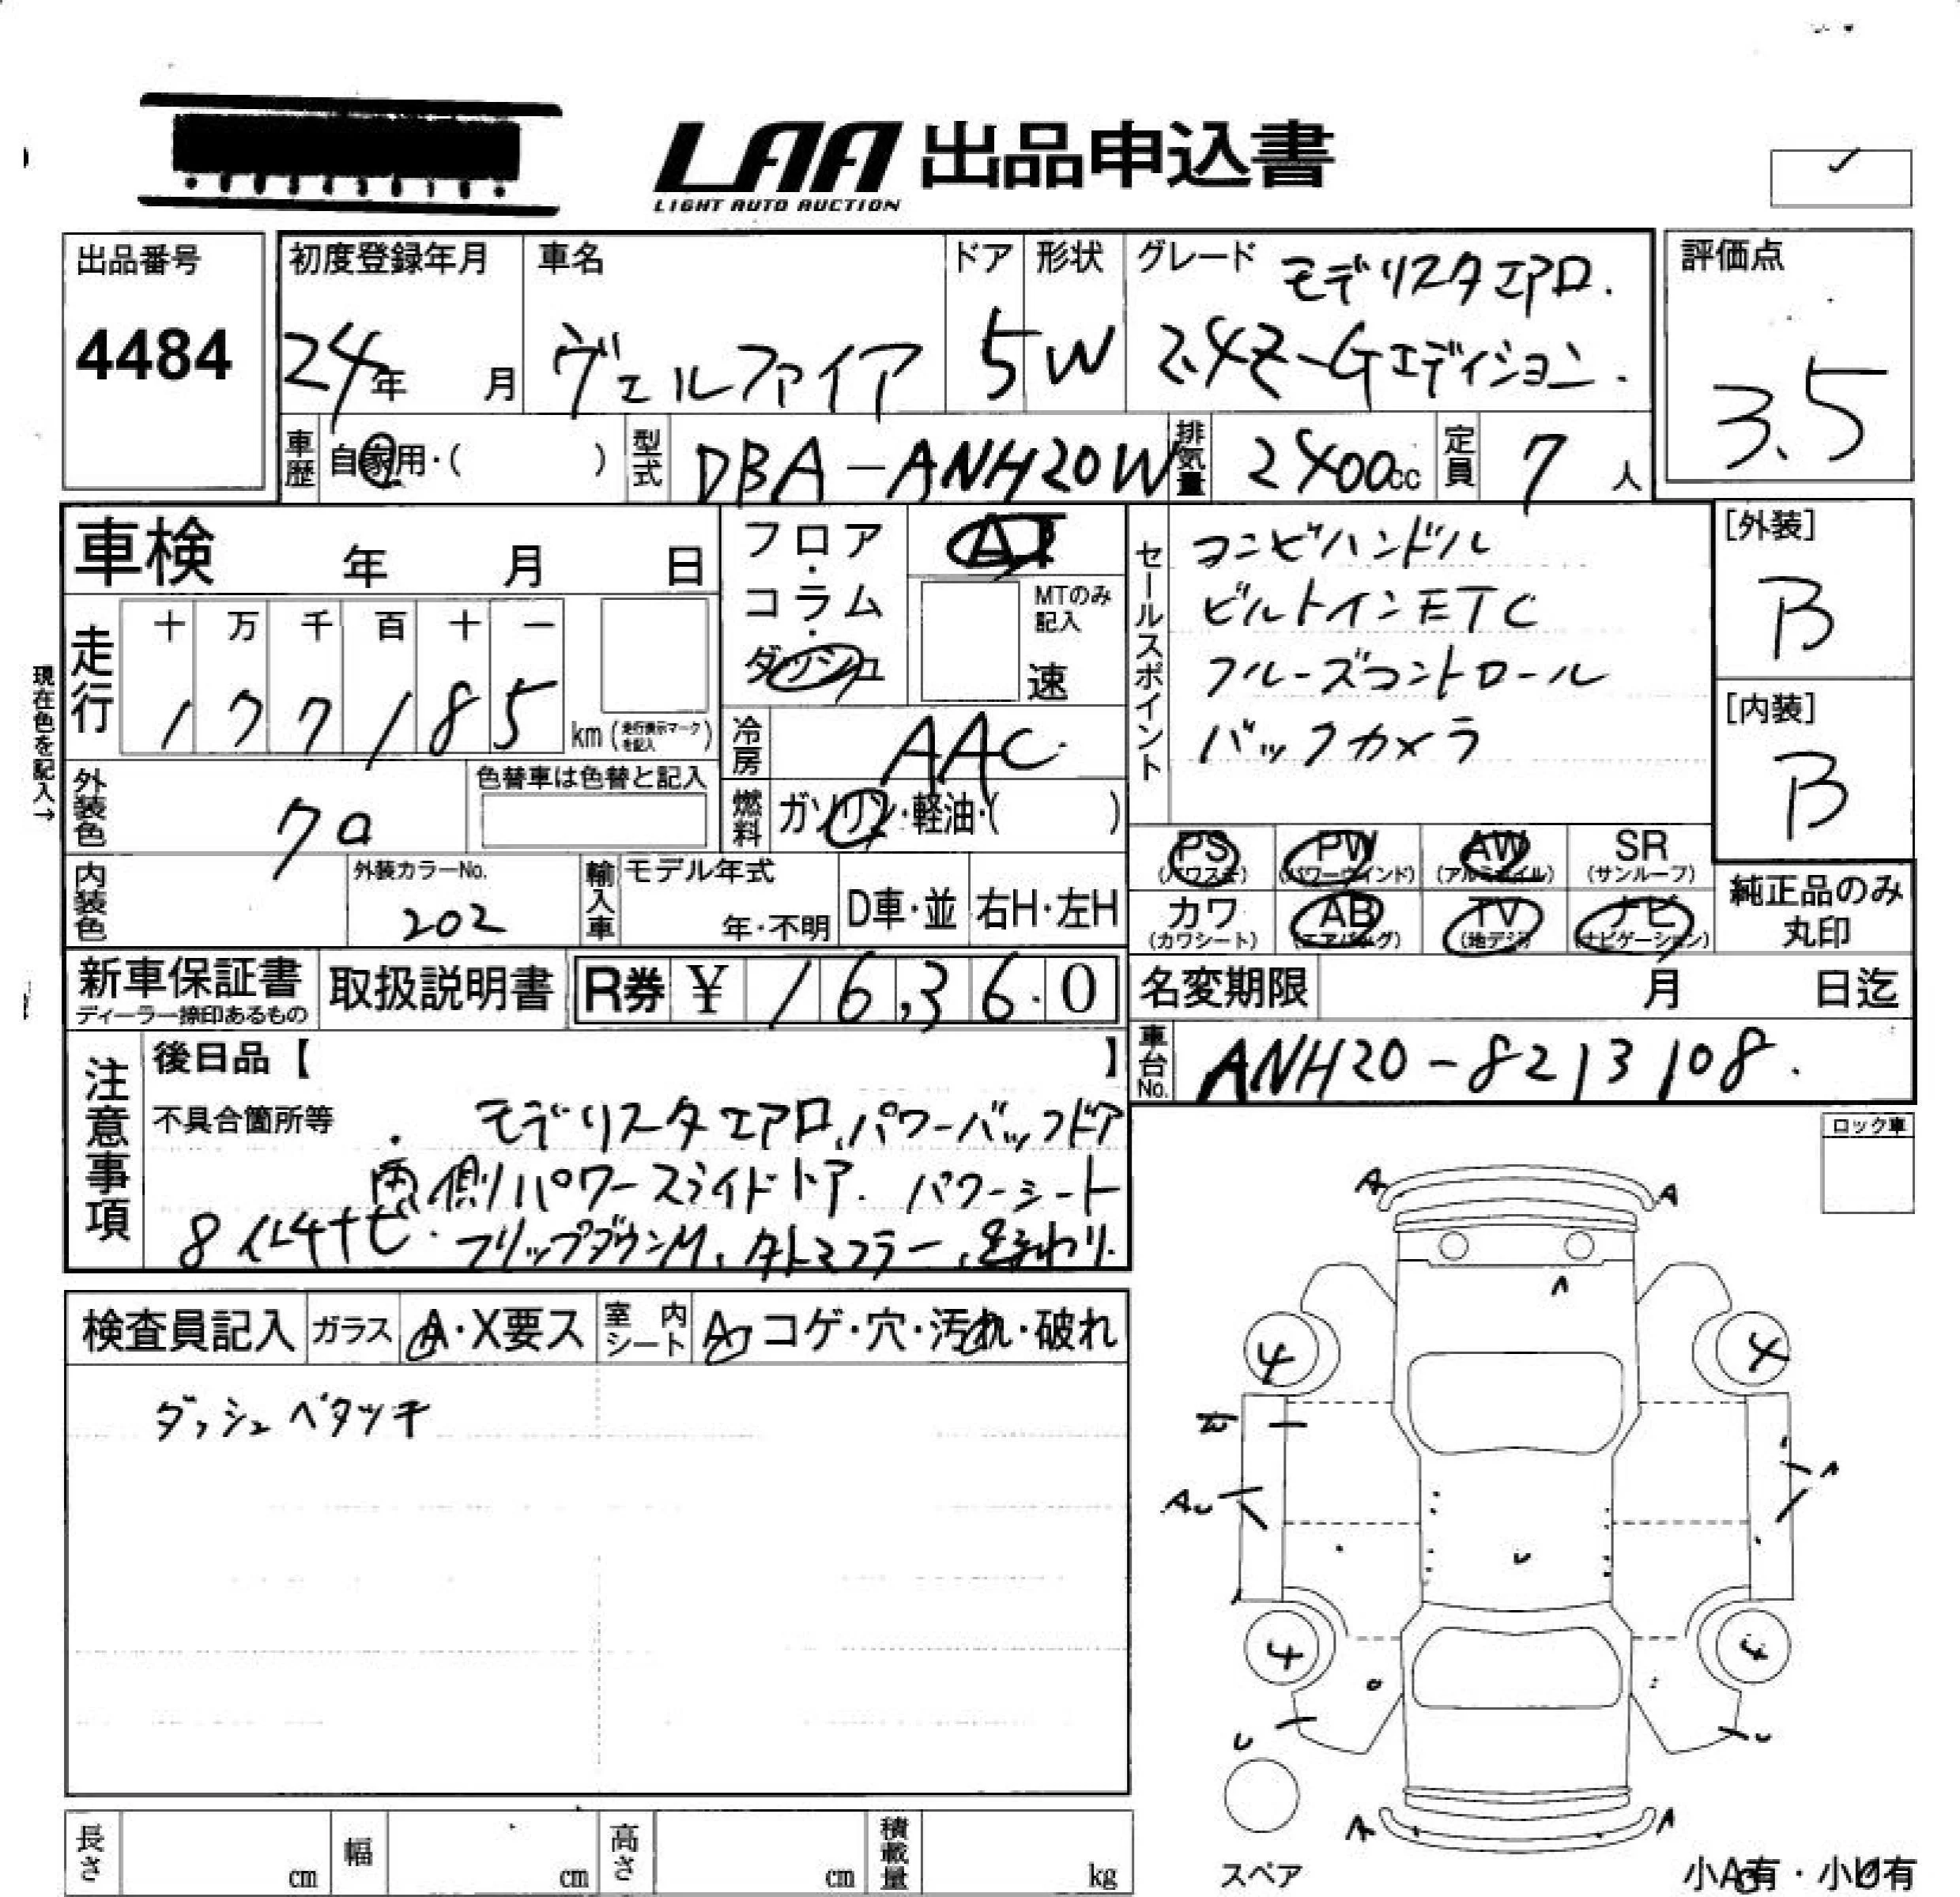 LAA 出品申込書
LIGHT AUTO AUCTION
出品番号
4484
初度登録年月
24年 月
車名
ヴェルファイア
ドア
5
形状
W
グレード
モデリスタエアロ.
2.4Z-Gエディション.
評価点
3.5
車歴 自家用・( )
型式 DBA-ANH20W
排気量 2400cc
定員 7人
車検 年 月 日
フロア・コラム・ダッシュ
AT
MTのみ記入
速
セールスポイント
コンビハンドル
ビルトインETC
クルーズコントロール
バックカメラ
[外装]
B
[内装]
B
現在色を記入→
走行
十 万 千 百 十 一
1 7 7 1 8 5
km (走行表示マークを記入)
冷房 AAC
燃料 ガソリン・軽油・( )
外装色 クロ
色替車は色替と記入
内装色
外装カラーNo.
202
輸入車
モデル年式
年・不明
D車・並
右H・左H
PS (パワステ)
PW (パワーウインド)
AW (アルミホイル)
SR (サンルーフ)
カワ (カワシート)
AB (エアバッグ)
TV (地デジ)
ナビ (ナビゲーション)
純正品のみ丸印
新車保証書
ディーラー捺印あるもの
取扱説明書
R券 ¥ 16,36.0
名変期限 月 日迄
車台No. ANH20-8213108.
注意事項
後日品【 】
不具合箇所等
モデリスタエアロ、パワーバックドア
両側パワースライドドア. パワーシート
8インチナビ. フリップダウンM、社外マフラー、足まわり.
ロック車
検査員記入
ガラス A・X要ス
室内シート A コゲ・穴・汚れ・破れ
ダッシュベタツキ
A A
A
4 4
AU A
U
4 4
U U
A A
スペア
長さ cm
幅 cm
高さ cm
積載量 kg
小A有・小U有